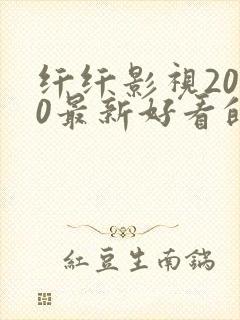 纤纤影視20
0最新好看的
紅豆生南鍋